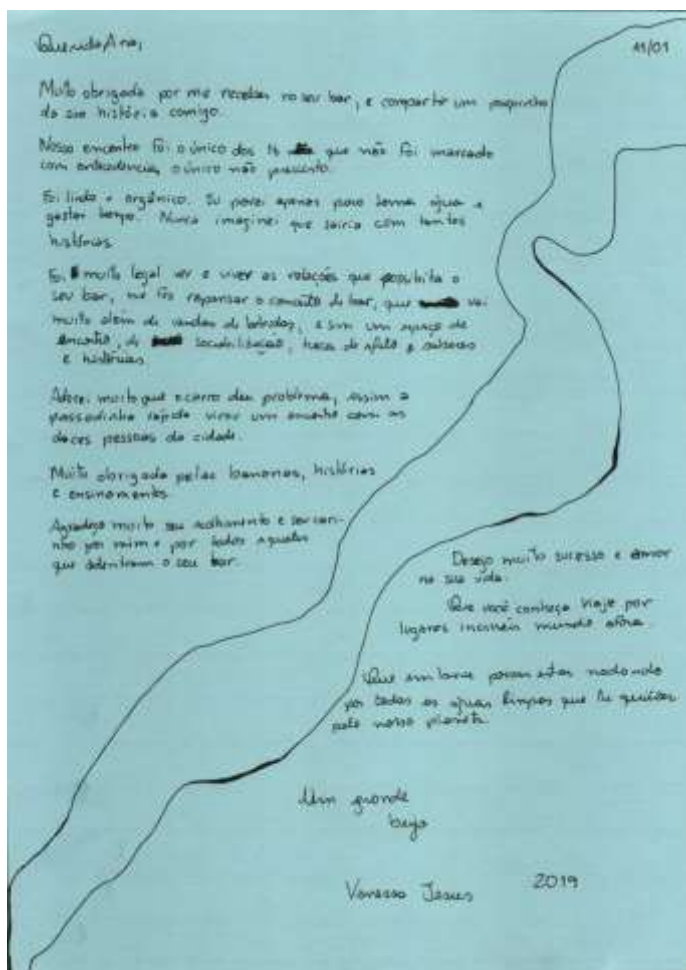 Querida Ana,
11/01
Muito obrigada por me receber no seu bar, e compartir um pouquinho
da sua história comigo.
Nosso encontro foi o único dos 16 que não foi marcado
com antecedência, o único não previsto.
Foi lindo e orgânico. Eu parei apenas para tomar água e
gastar tempo. Nunca imaginei que sairia com tantas
histórias.
Foi muito legal ver e viver as relações que possibilita o
seu bar, me fez repensar o conceito de bar, que vai
muito além de vendas de bebidas, e sim um espaço de
encontro, de sociabilização, troca de afeto e saberes
e histórias.
Adorei muito que o carro deu problema, assim a
passadinha rápida virou um encontro com as
doces pessoas da cidade.
Muito obrigada pelas bananas, histórias
e ensinamentos.
Agradeço muito seu acolhimento e seu cari-
nho por mim e por todos aqueles
que adentram o seu bar.
Desejo muito sucesso e amor
na sua vida.
Que você conheça viaje por
lugares incríveis mundo afora.
Que em breve possa estar nadando
por todas as águas limpas que tu quiser
pelo nosso planeta.
Um grande
beijo
Vanessa Jesus
2019